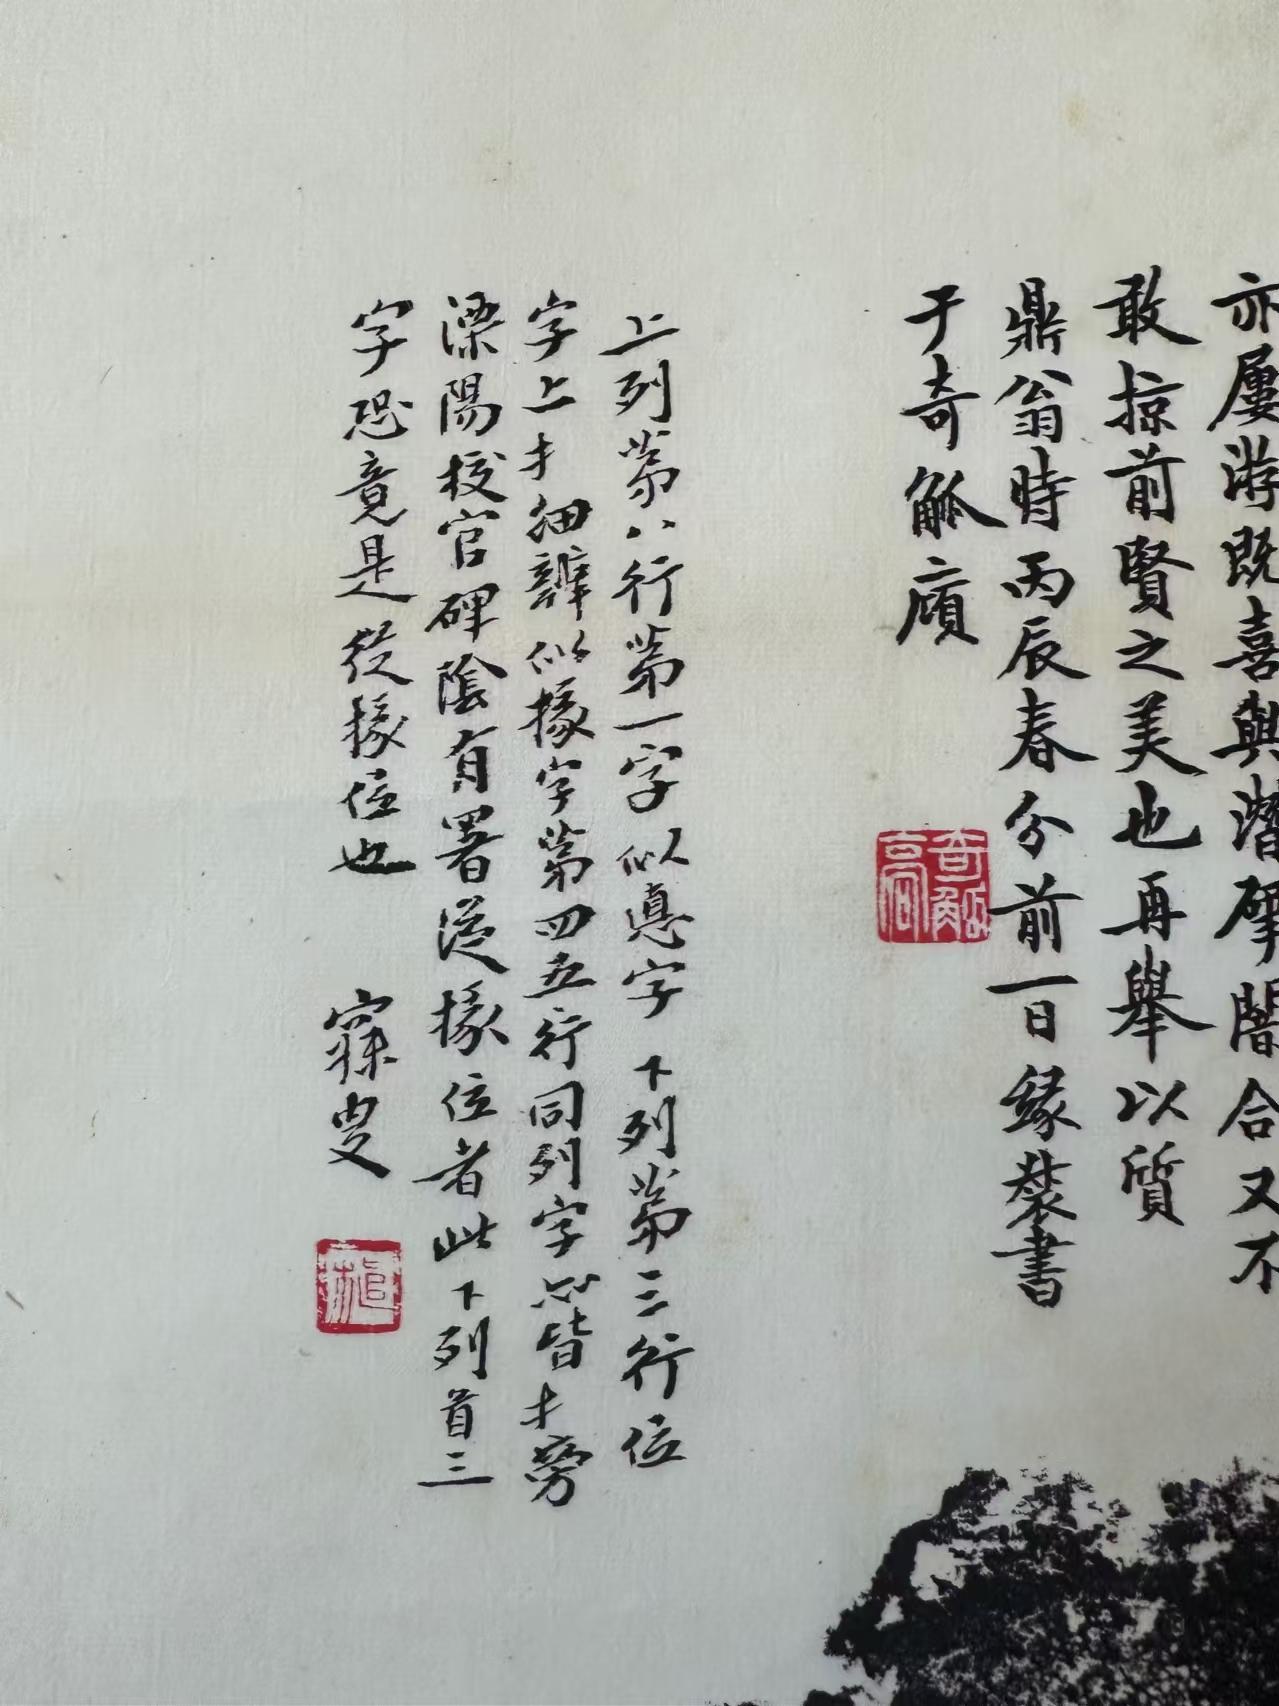 亦屢游既喜與潛揅闇合又不
敢掠前賢之美也再舉以質
鼎翁時丙辰春分前一日緣裝書
于奇觚廎
奇觚
上列第八行第一字似惪字下列第三行位
字上扌細辨似掾字第四五行同列字似皆扌旁
溧陽校官碑陰有署從掾位者此下列首三
字恐竟是從掾位也
寐叟
植